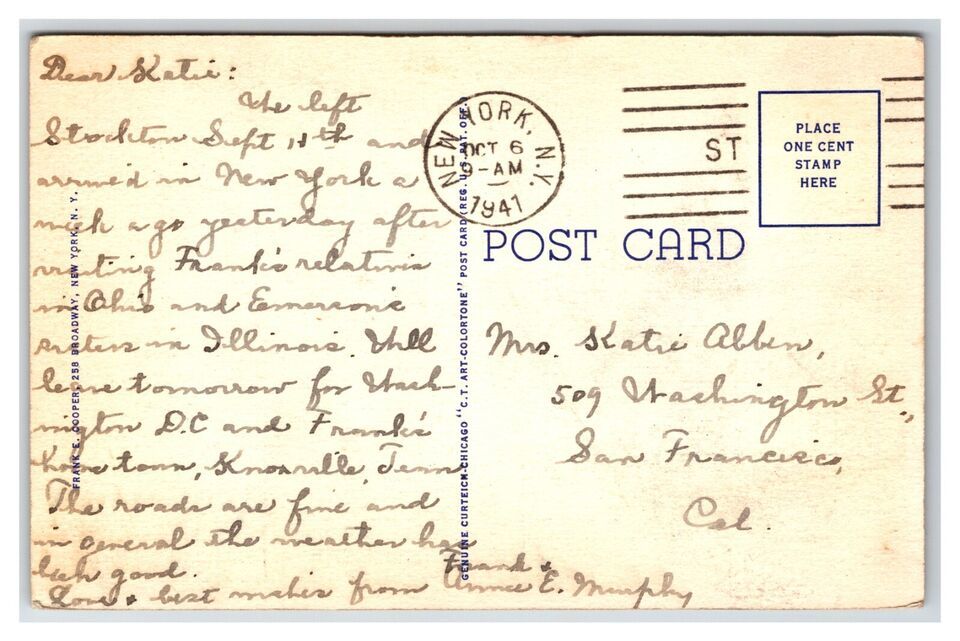 Dear Katie:
We left
Stockton Sept 11th and
arrived in New York a
week ago yesterday after
visiting Frank's relatives
in Ohio and Emerson's
sisters in Illinois. Will
leave tomorrow for Wash-
ington D.C and Frank's
home town, Knoxville, Tenn
The roads are fine and
in general the weather has
been good.
Love & best wishes from Frank &
Annie E. Murphy
FRANK E. COOPER, 258 BROADWAY, NEW YORK, N. Y.
GENUINE CURTEICH-CHICAGO "C. T. ART-COLORTONE" POST CARD (REG. U. S. PAT. OFF.)
NEW YORK, N.Y.
OCT 6
9-AM
1941
ST
PLACE
ONE CENT
STAMP
HERE
POST CARD
Mrs. Katie Abben,
509 Washington St.,
San Francisco,
Cal.